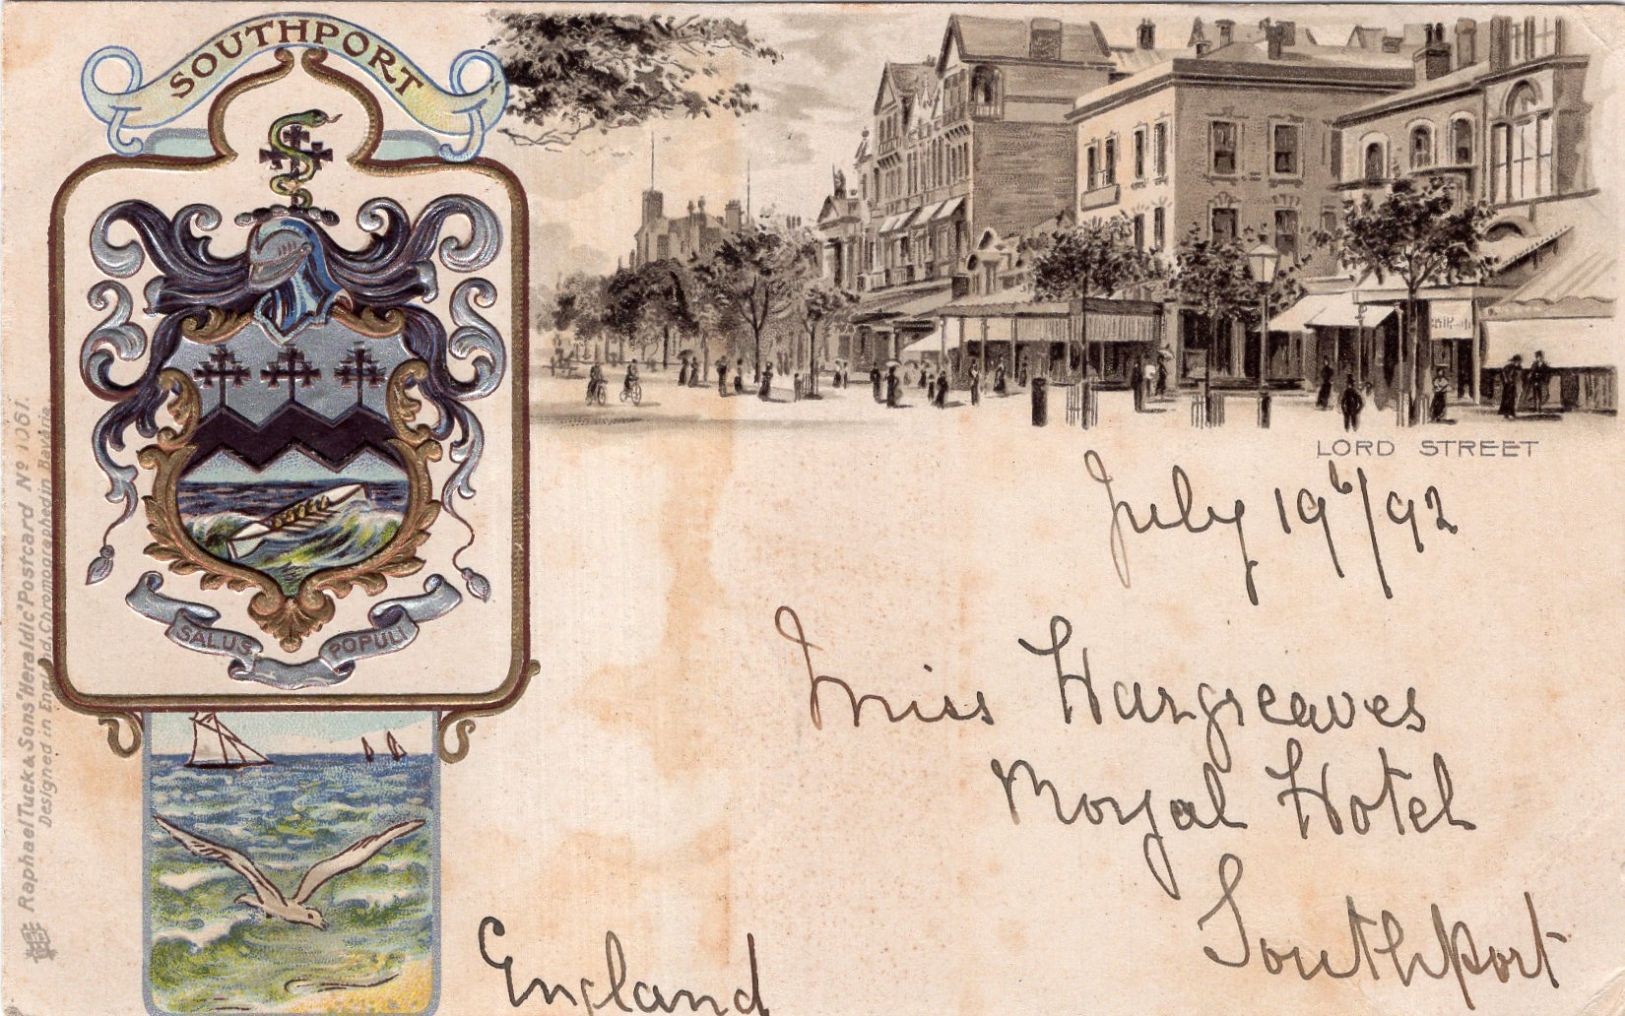 SOUTHPORT
SALUS POPULI
Raphael Tuck & Sons "Heraldic" Postcard No 1061.
Designed in England Chromographed in Bavaria
LORD STREET
July 19th/92
Miss Hargreaves
Royal Hotel
Southport
England